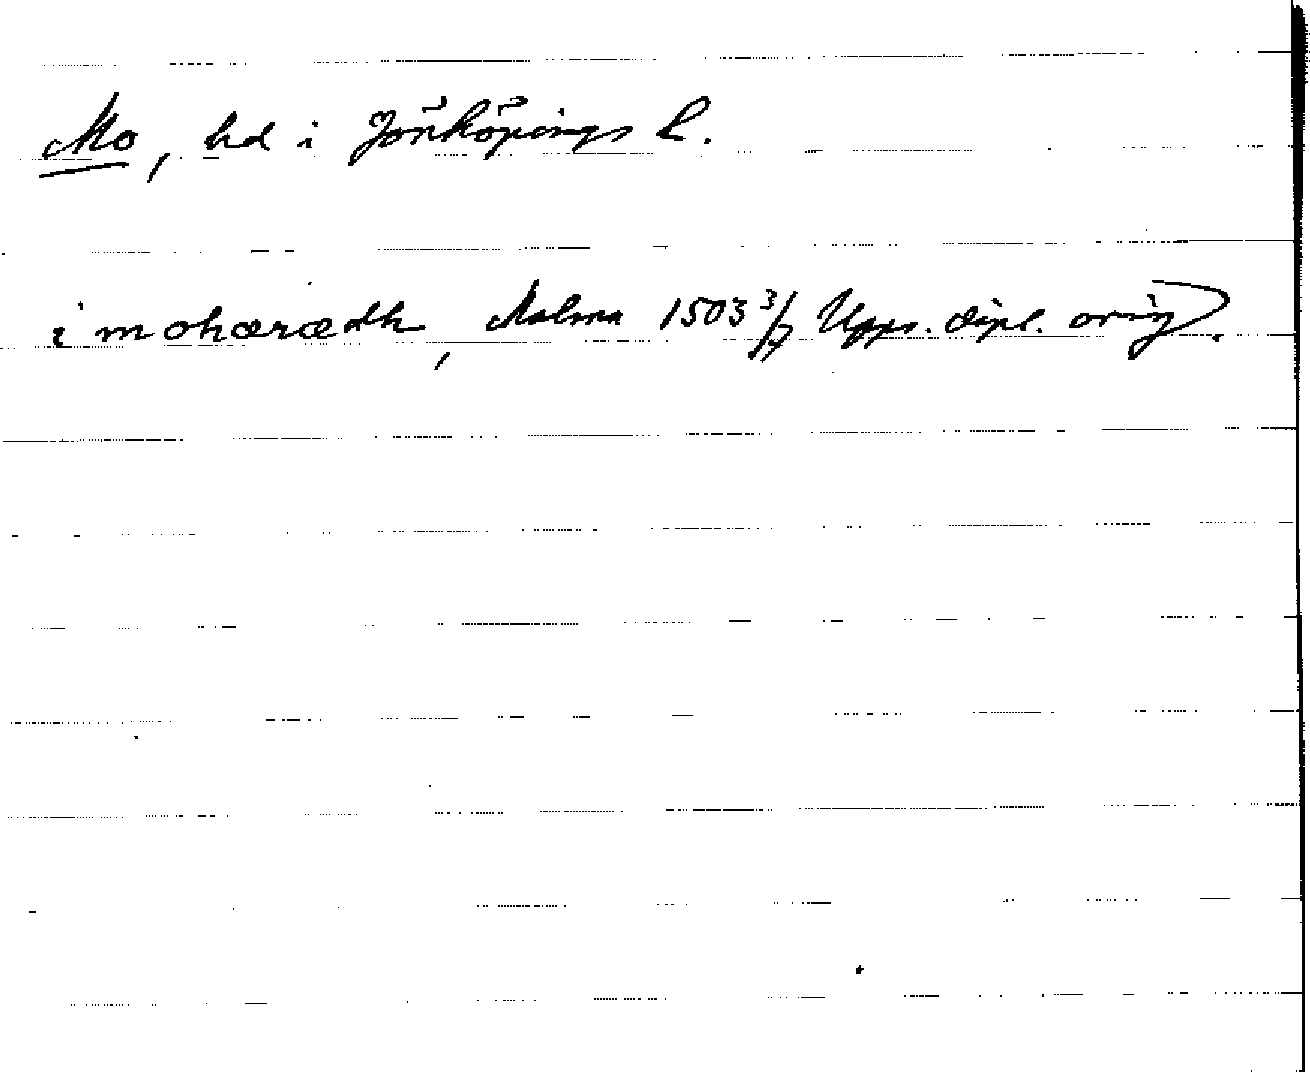 Mo, hd i Jönköpings l.
i mohærædh, Malma 1503 3/7 Upps. dipl. orig.